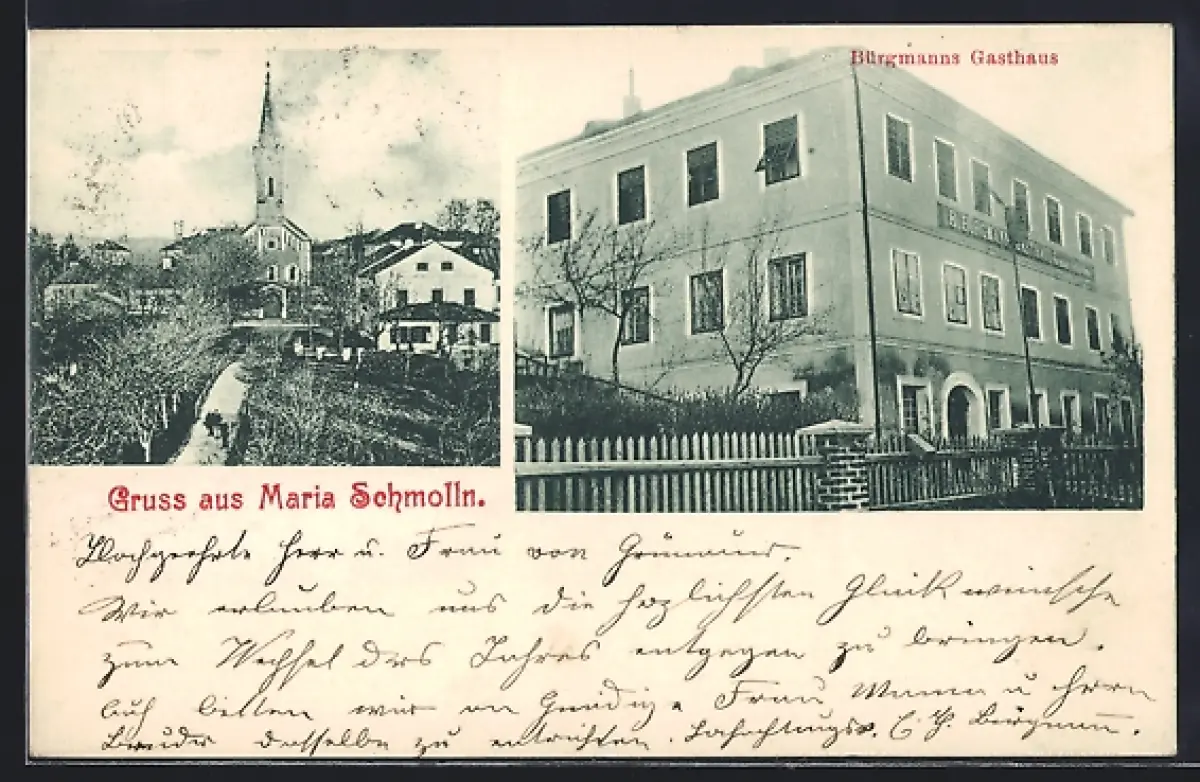 Bürgmanns Gasthaus
Gruss aus Maria Schmolln.
Hochgeehrte Herr u. Frau von Grünau
Wir erlauben uns die herzlichsten Glückwünsche
zum Wechsel des Jahres entgegen zu bringen.
Auch bitten wir an Gnädige Frau Mama u Herrn
Bruder dasselbe zu entrichten. Hochachtungsv. Bürgmann.